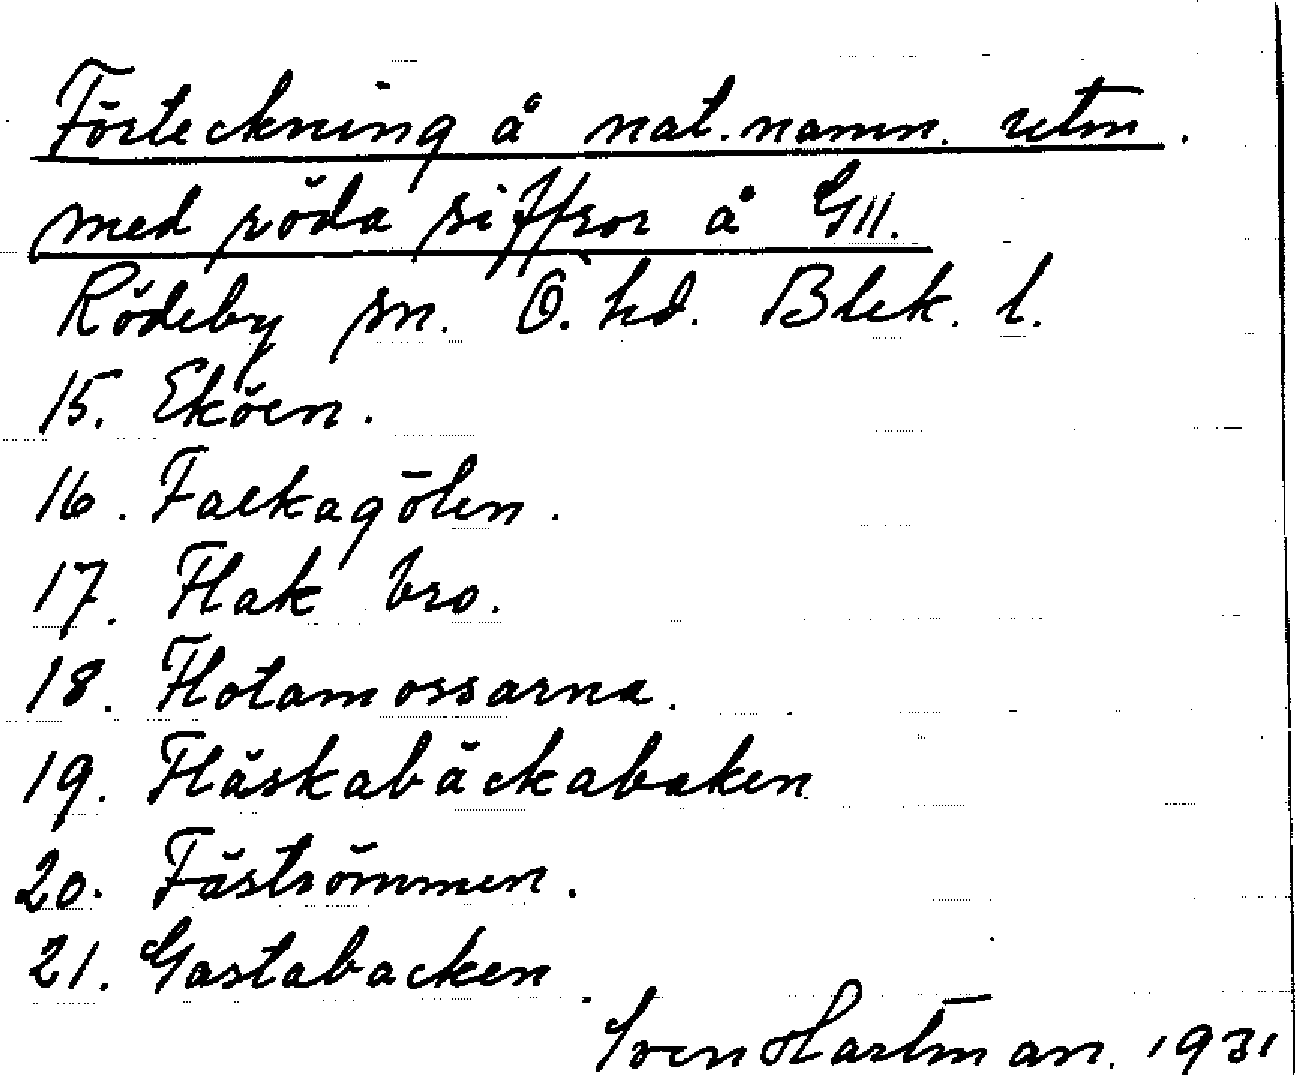 Förteckning å nat.namn. utm.
med röda siffror å GII.
Rödeby sn. Ö. hd. Blek. l.
15. Eköen.
16. Falkagölen.
17. Flak bro.
18. Flotamossarna.
19. Fläskabäckabaken
20. Fäströmmen.
21. Gastabacken.
Sven Hartman. 1931